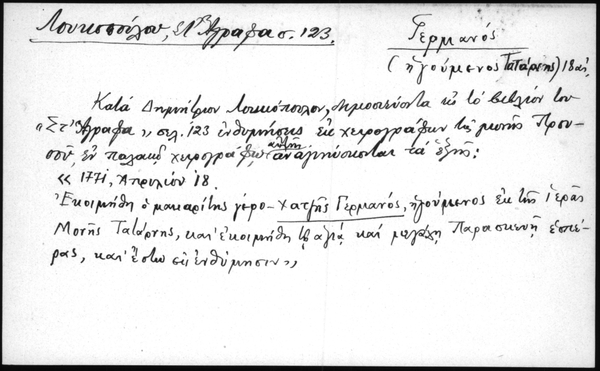 Λουκοπούλου, Στ' Άγραφα σ. 123.
Γερμανός
(ἡγούμενος Τατάρνης) 18 αἰ.
Κατά Δημήτριον Λουκόπουλον, δημοσιεύοντα εἰς τό βιβλίον του
"Στ' Άγραφα", σελ. 123 ἐνθυμήσεις ἐκ χειρογράφων τῆς μονῆς Πρου-
σοῦ, ἐν παλαιῷ χειρογράφῳ αὐτῆς ἀναγινώσκονται τά ἑξῆς:
"1771, Ἀπριλίου 18.
Ἐκοιμήθη ὁ μακαρίτης γερο-Χατζῆς Γερμανός, ἡγούμενος ἐκ τῆς ἱερᾶς
Μονῆς Τατάρνης, καί ἐκοιμήθη τῇ ἁγίᾳ καί μεγάλῃ Παρασκευῇ ἑσπέ-
ρας, καί ἔστω εἰς ἐνθύμησιν"